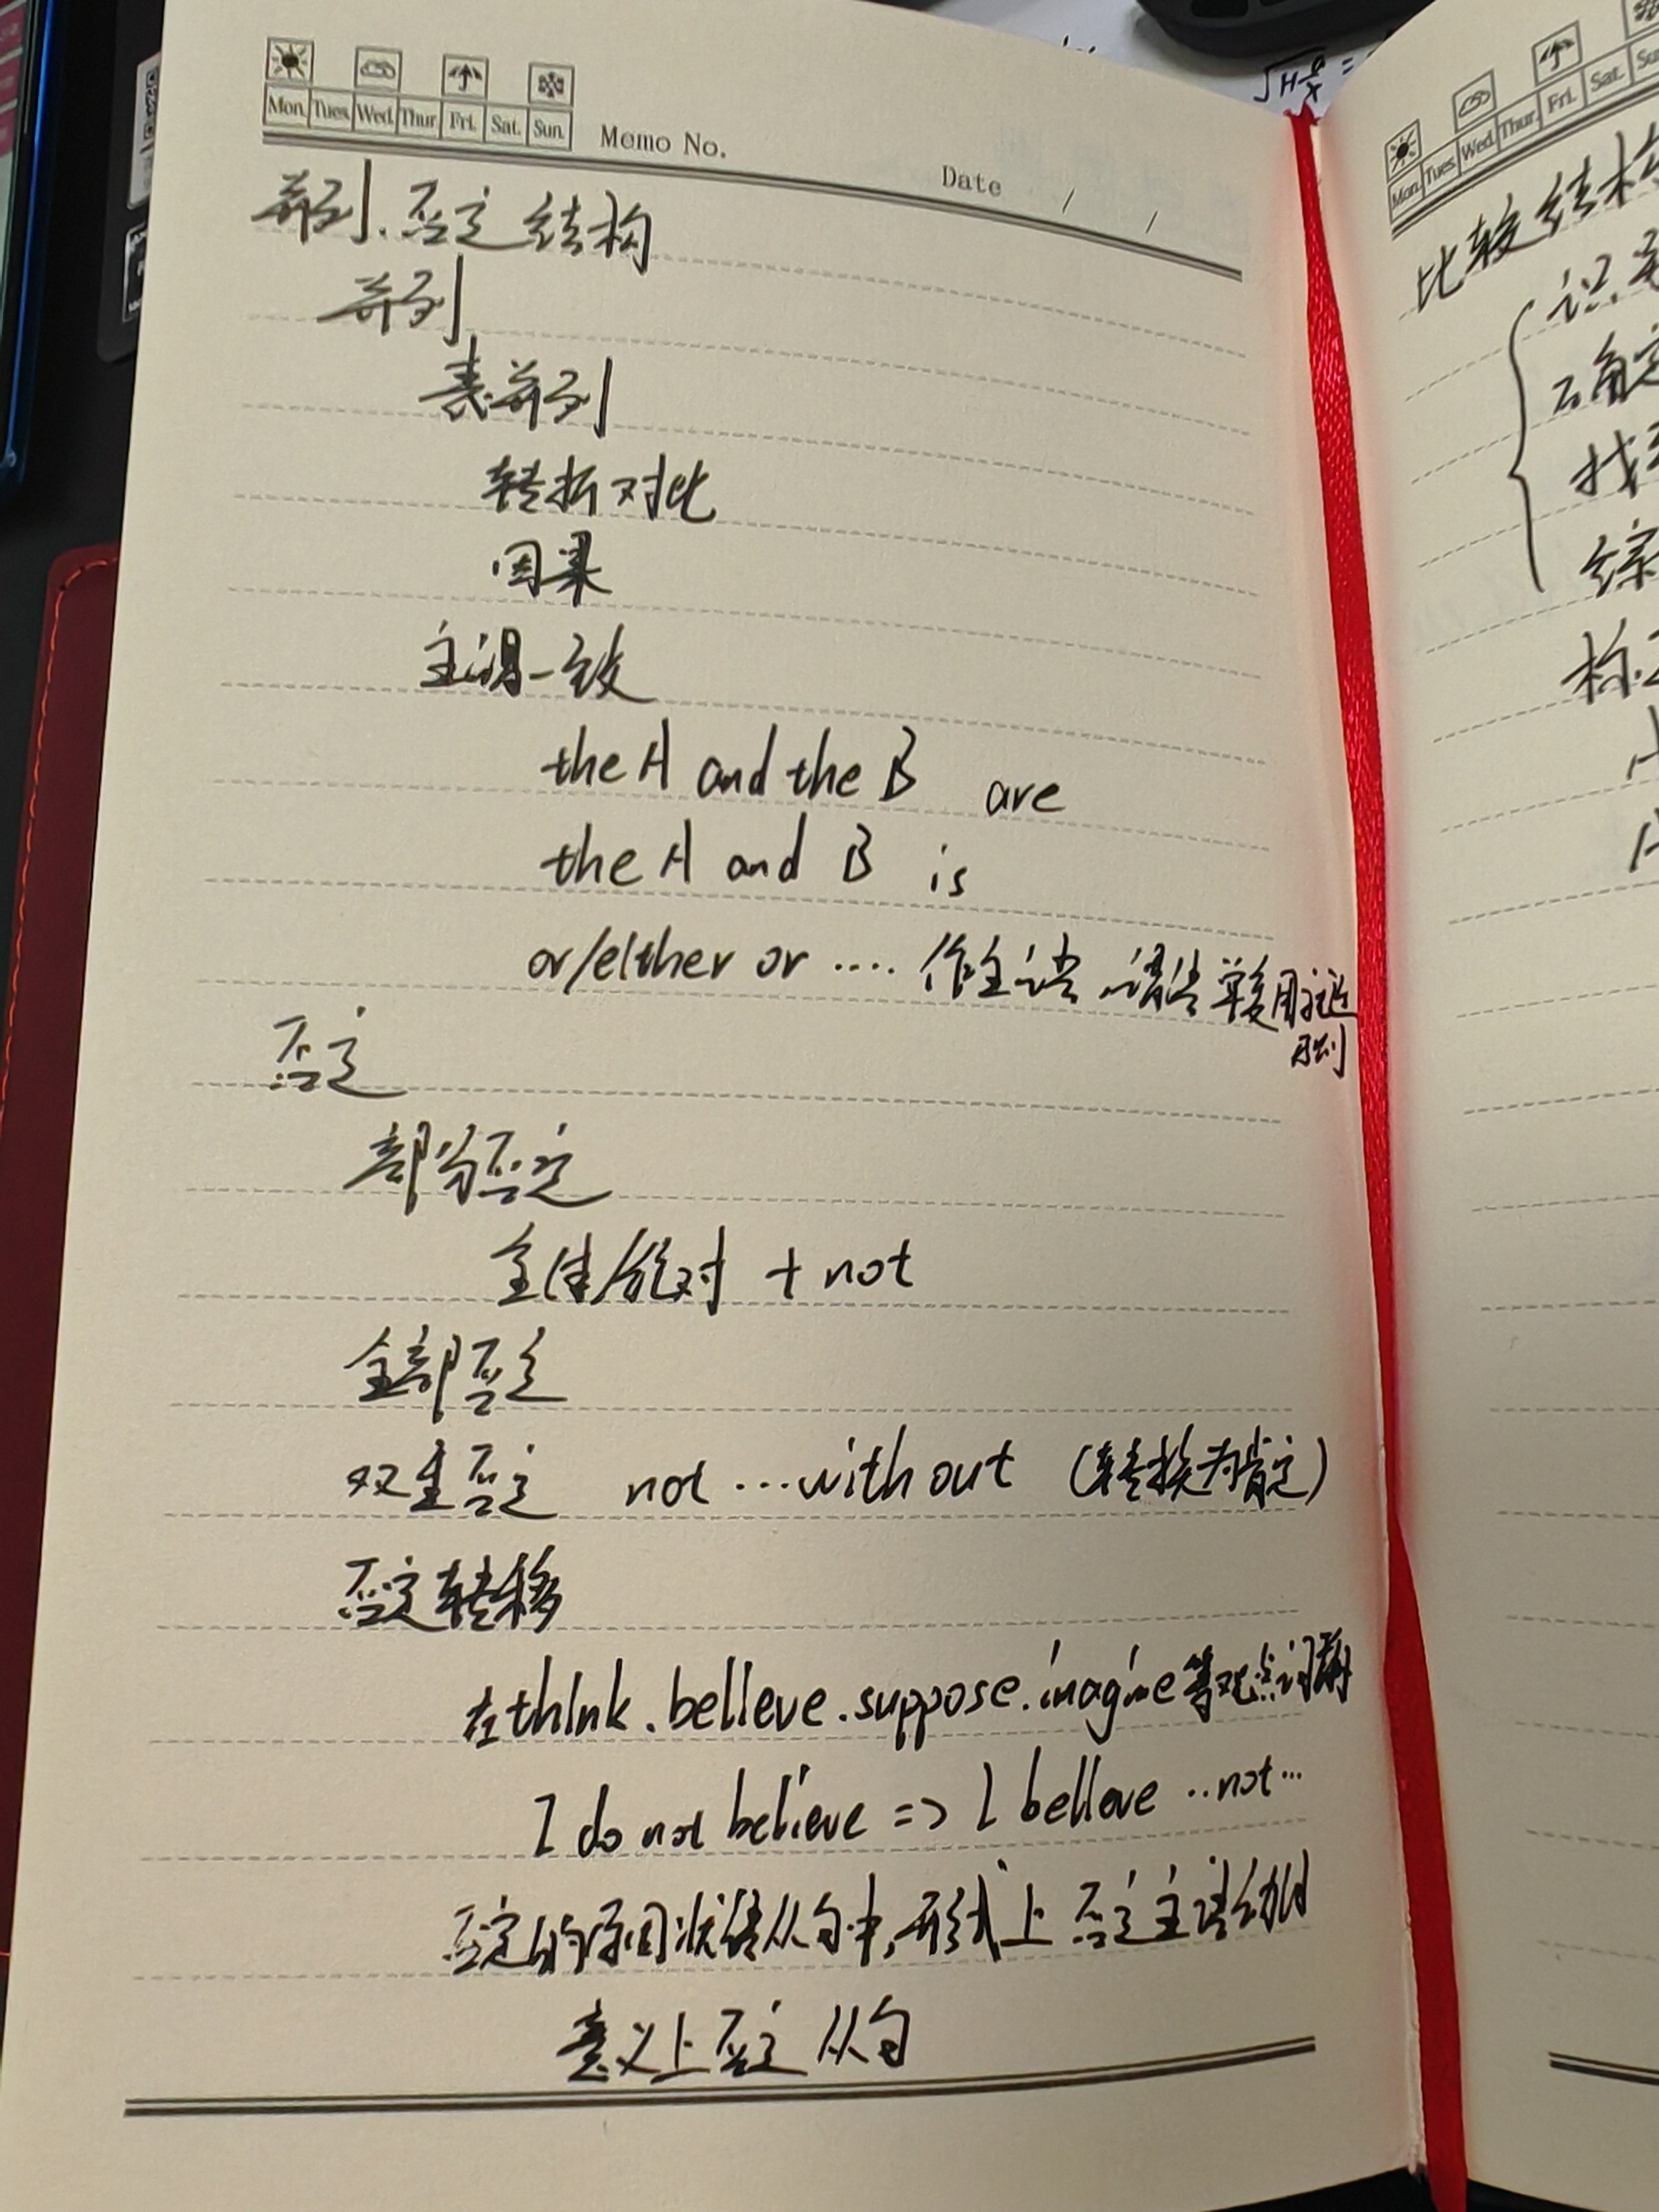 Mon. Tues. Wed. Thur. Fri. Sat. Sun. Memo No. Date / /
并列.否定结构
并列
表并列
转折对比
因果
主谓一致
the A and the B are
the A and B is
or/either or .... 作主语,谓语单复用就近
原则
否定
部分否定
全体/绝对 + not
全部否定
双重否定 not ...without (转换为肯定)
否定转移
在think.believe.suppose.imagine等观点词前
I do not believe => I believe ..not...
否定的原因状语从句中,形式上否定主谓
意义上否定从句
Mon. Tues. Wed. Thur. Fri. Sat.
比较结构